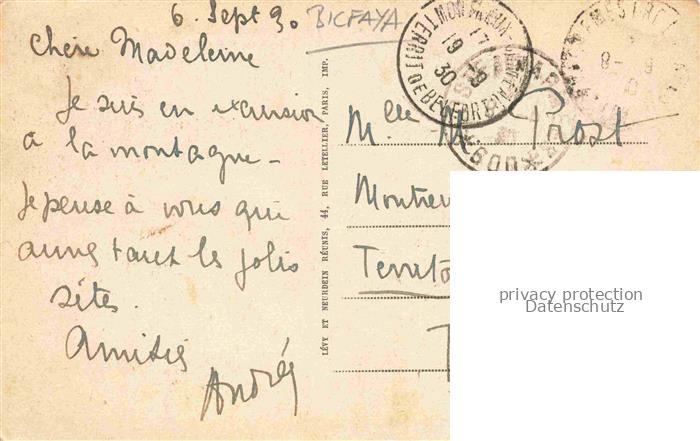 6. Sept 30
BICFAYA
Chère Madeleine
Je suis en excursion
à la montagne –
Je pense à vous qui
aimez tant les jolis
sites.
Amitiés
André
LÉVY ET NEURDEIN RÉUNIS, 44, RUE LETELLIER, PARIS, IMP.
TERRIT DE BELFORT
19 17
9
30
8-
Mlle M Prost
Montreu
Territo
privacy protection
Datenschutz